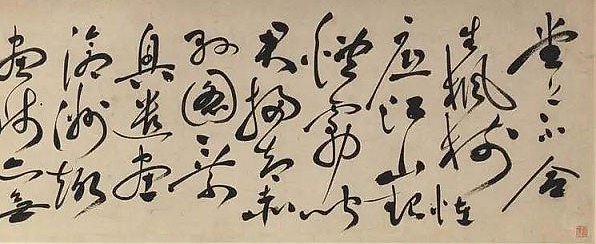 堂上不合
生楓樹怪
底江山起
煙霧聞
君掃却赤
縣圖乘
興遣畫
滄洲趣
畫師亦無